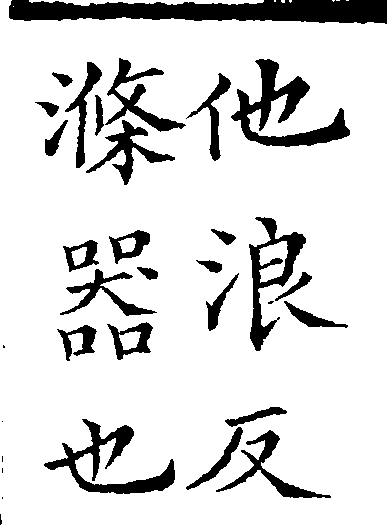 他浪反
滌器也